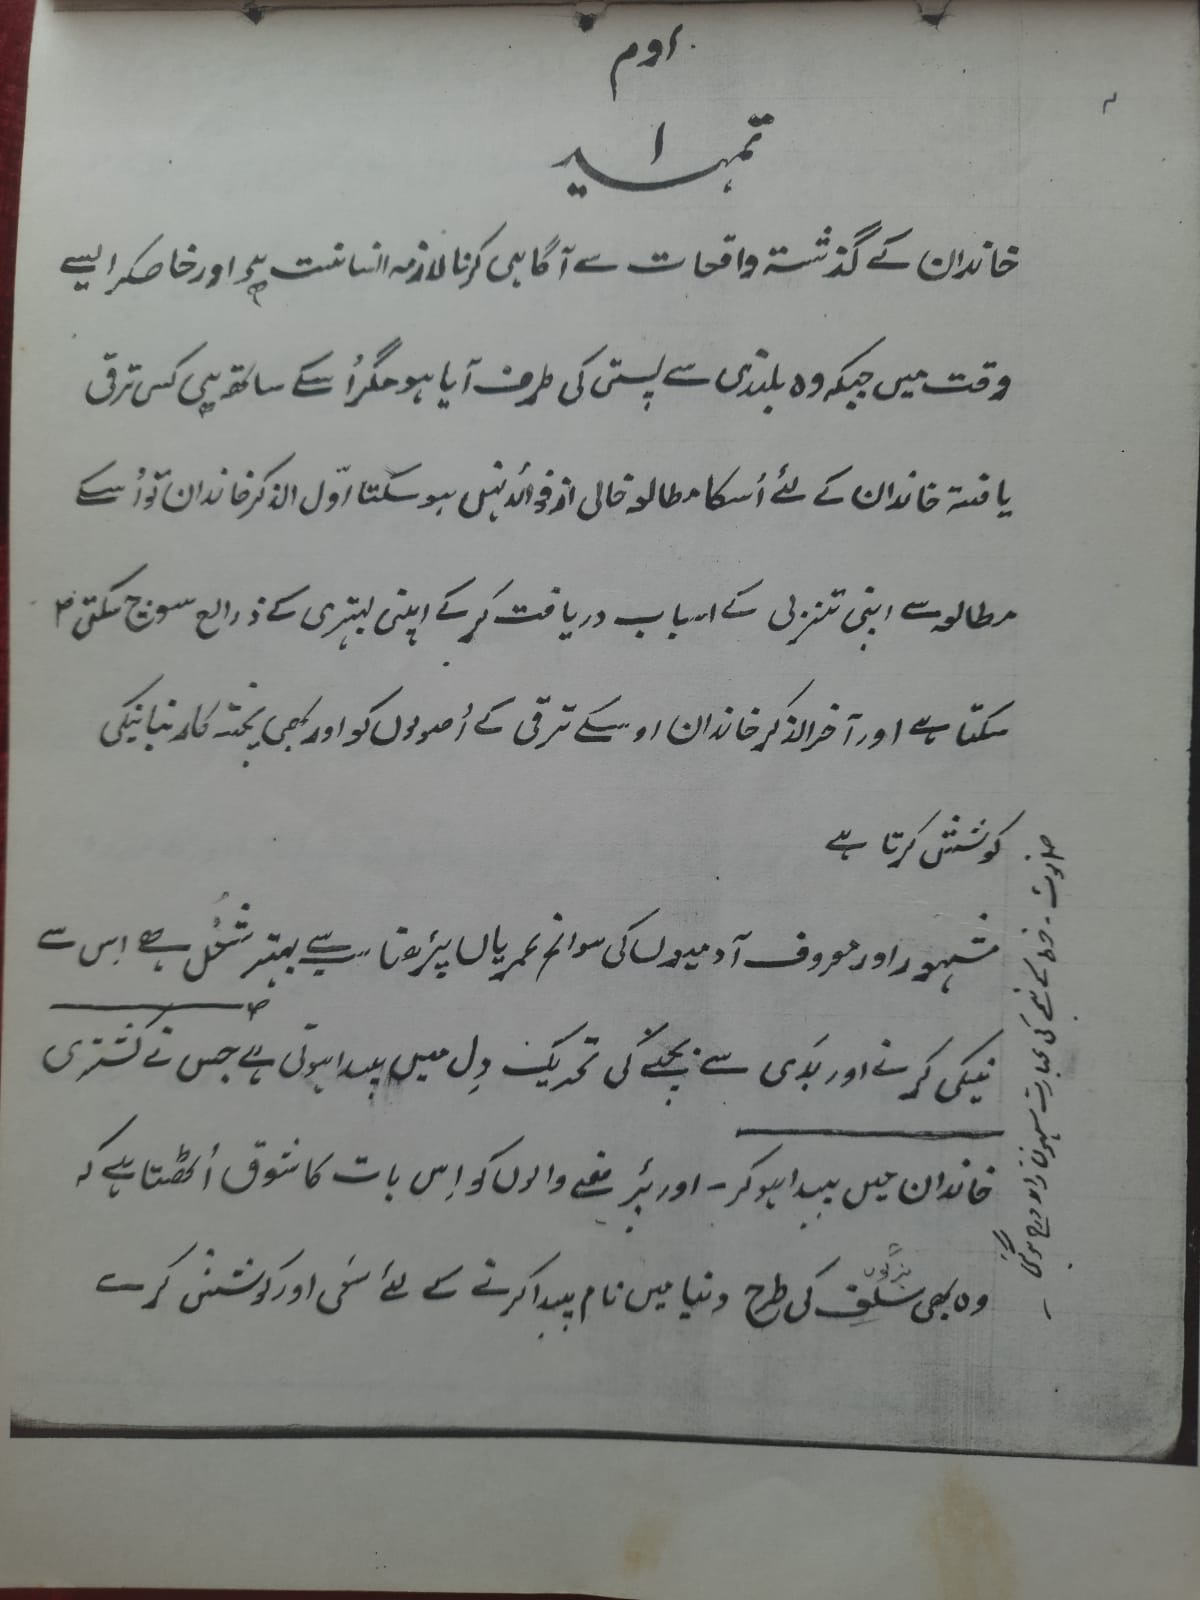 اوم
۱
تمہید
خاندان کے گذشتہ واقعات سے آگاہی کرنا لازمہ انسانیت ہے اور خاصکر ایسے
وقت میں جبکہ وہ بلندی سے پستی کی طرف آیا ہو مگر اُسکے ساتھ ہی کسی ترقی
یافتہ خاندان کے لئے اُسکا مطالعہ خالی از فوائد نہیں ہو سکتا اوّل الذکر خاندان تو اُسکے
مطالعہ سے اپنی تنزلی کے اسباب دریافت کر کے اپنی بہتری کے ذرائع سوچ سکتی
سکتا ہے اور آخر الذکر خاندان اوسکے ترقی کے اُصولوں کو اور بھی پختہ کار بنانیکی
کوشش کرتا ہے
مشہور اور معروف آدمیوں کی سوانح عمریاں پڑھنا سب سے بہتر شغل ہے اِس سے
نیکی کرنے اور بَدی سے بچنے کی تحریک دِل میں پیدا ہوتی ہے جس نے کشتری
خاندان میں پیدا ہو کر - اور پڑھنے والوں کو اِس بات کا شوق اُٹھتا ہے کہ
بزرگوں
وہ بھی سلف کی طرح دنیا میں نام پیدا کرنے کے لئے سَعی اور کوشش کرے
نوٹ - خط کے نیچے کی عبارت سہوًا درج ہو گئی